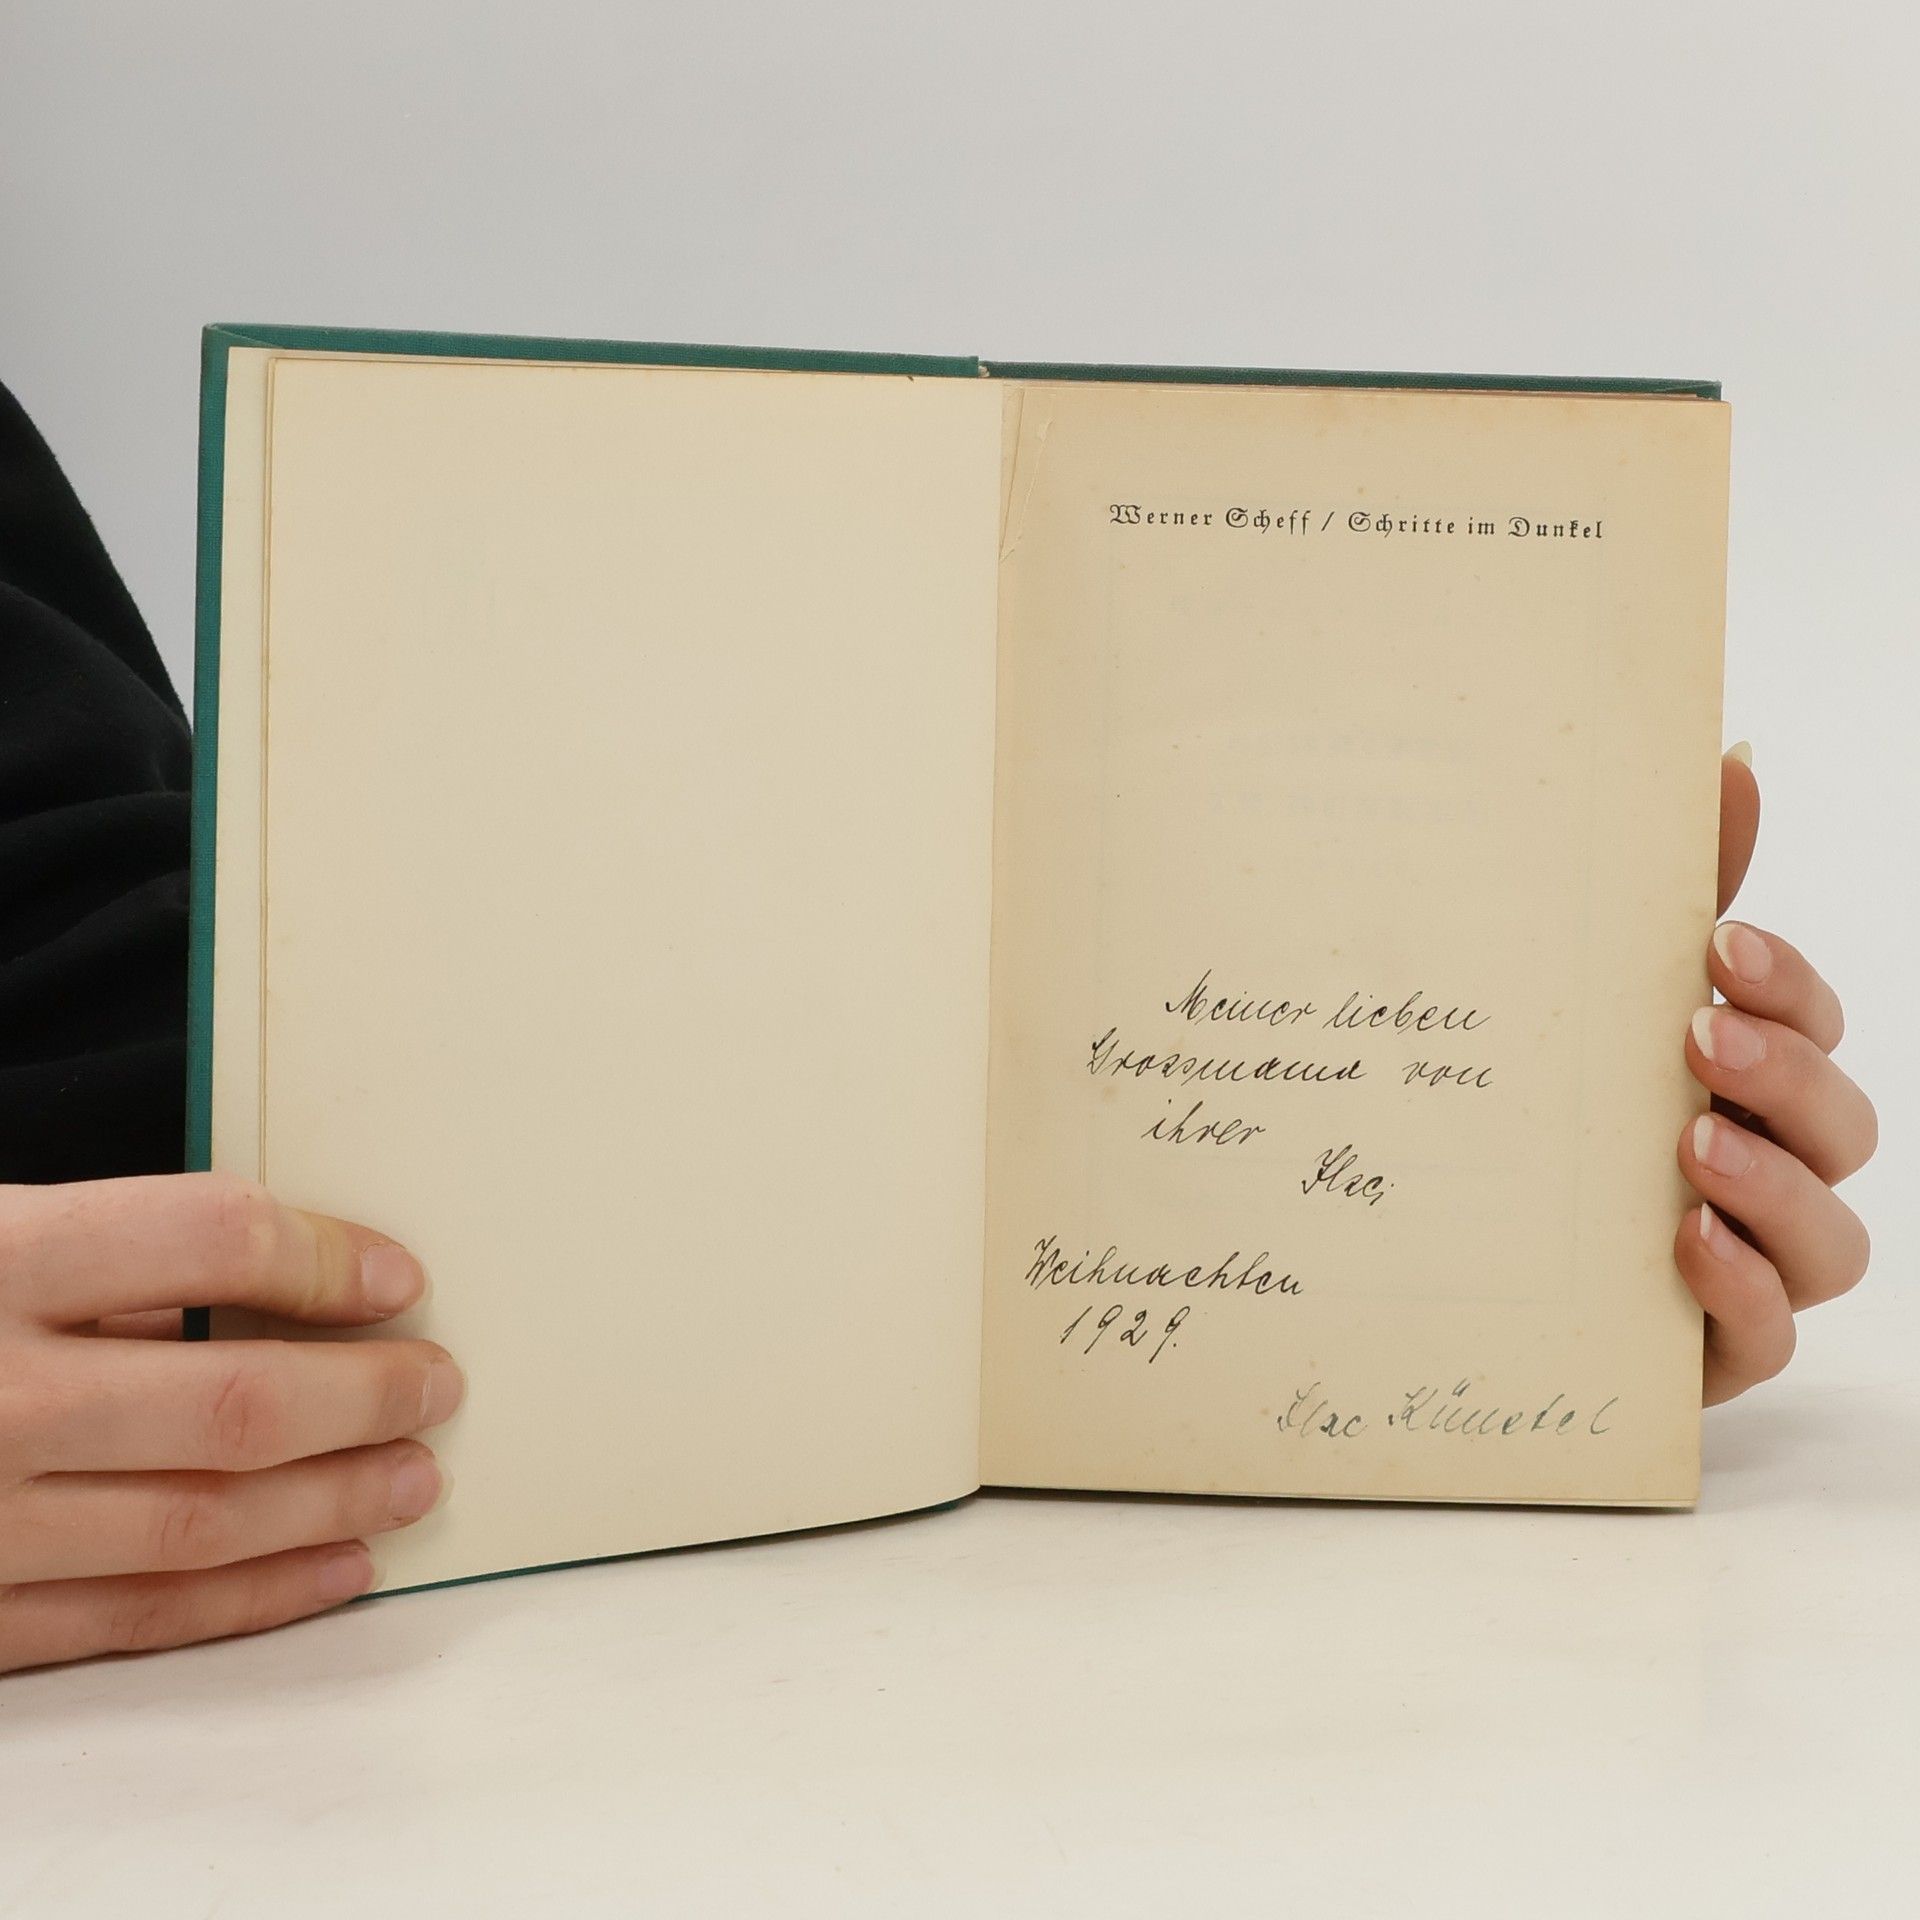 Werner Scheff / Schritte im Dunkel
Meiner lieben
Grossmama von
ihrer
Ilsei
Weihnachten
1929.
Ilse Künstel